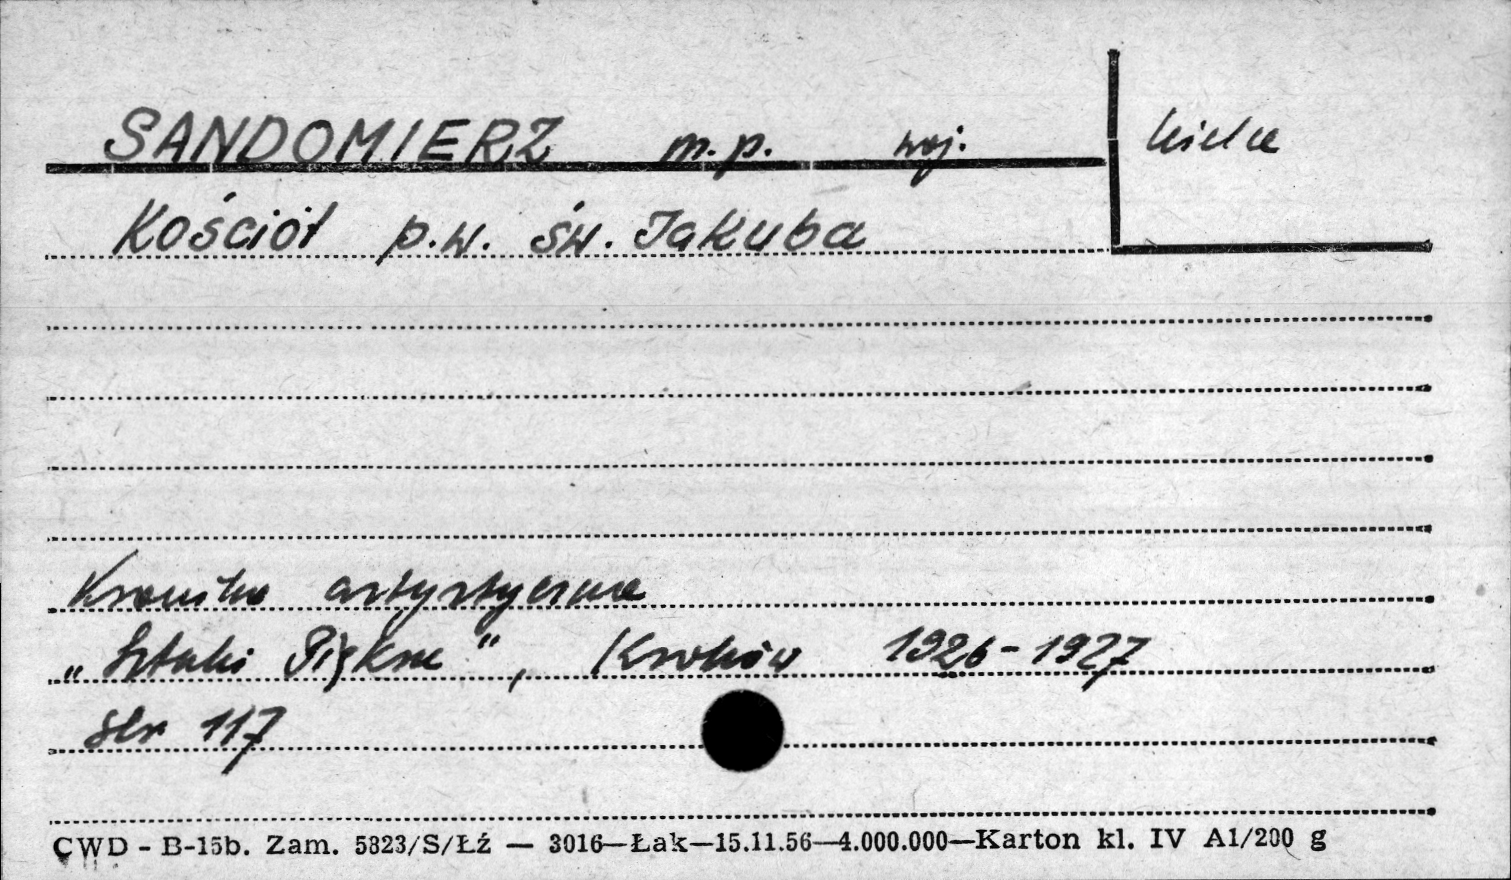 SANDOMIERZ m.p. woj. kielce
Kościół p.w. św. Jakuba
Kronika artystyczna
„Sztuki Piękne", Kraków 1926-1927
str 117
CWD - B-15b. Zam. 5823/S/Łź — 3016—Łak—15.11.56—4.000.000—Karton kl. IV A1/200 g